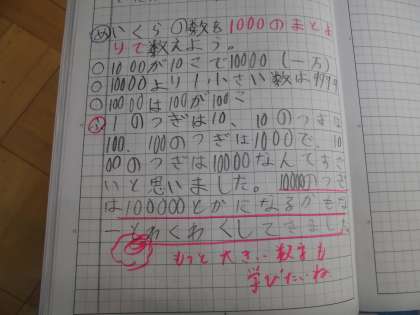 め いくらの数も1000のまとま
りで数えよう。
○1000が10こで10000(一万)
○10000より1小さい数は9999
○10000は100が100こ
ふ 1のつぎは10、10のつぎは
100、100のつぎは1000で、10
00のつぎは10000なんてすご
いと思いました。10000のつぎ
は100000とかになるかもな
ーとわくわくしてきました
もっと大きい数字も
学びたいね